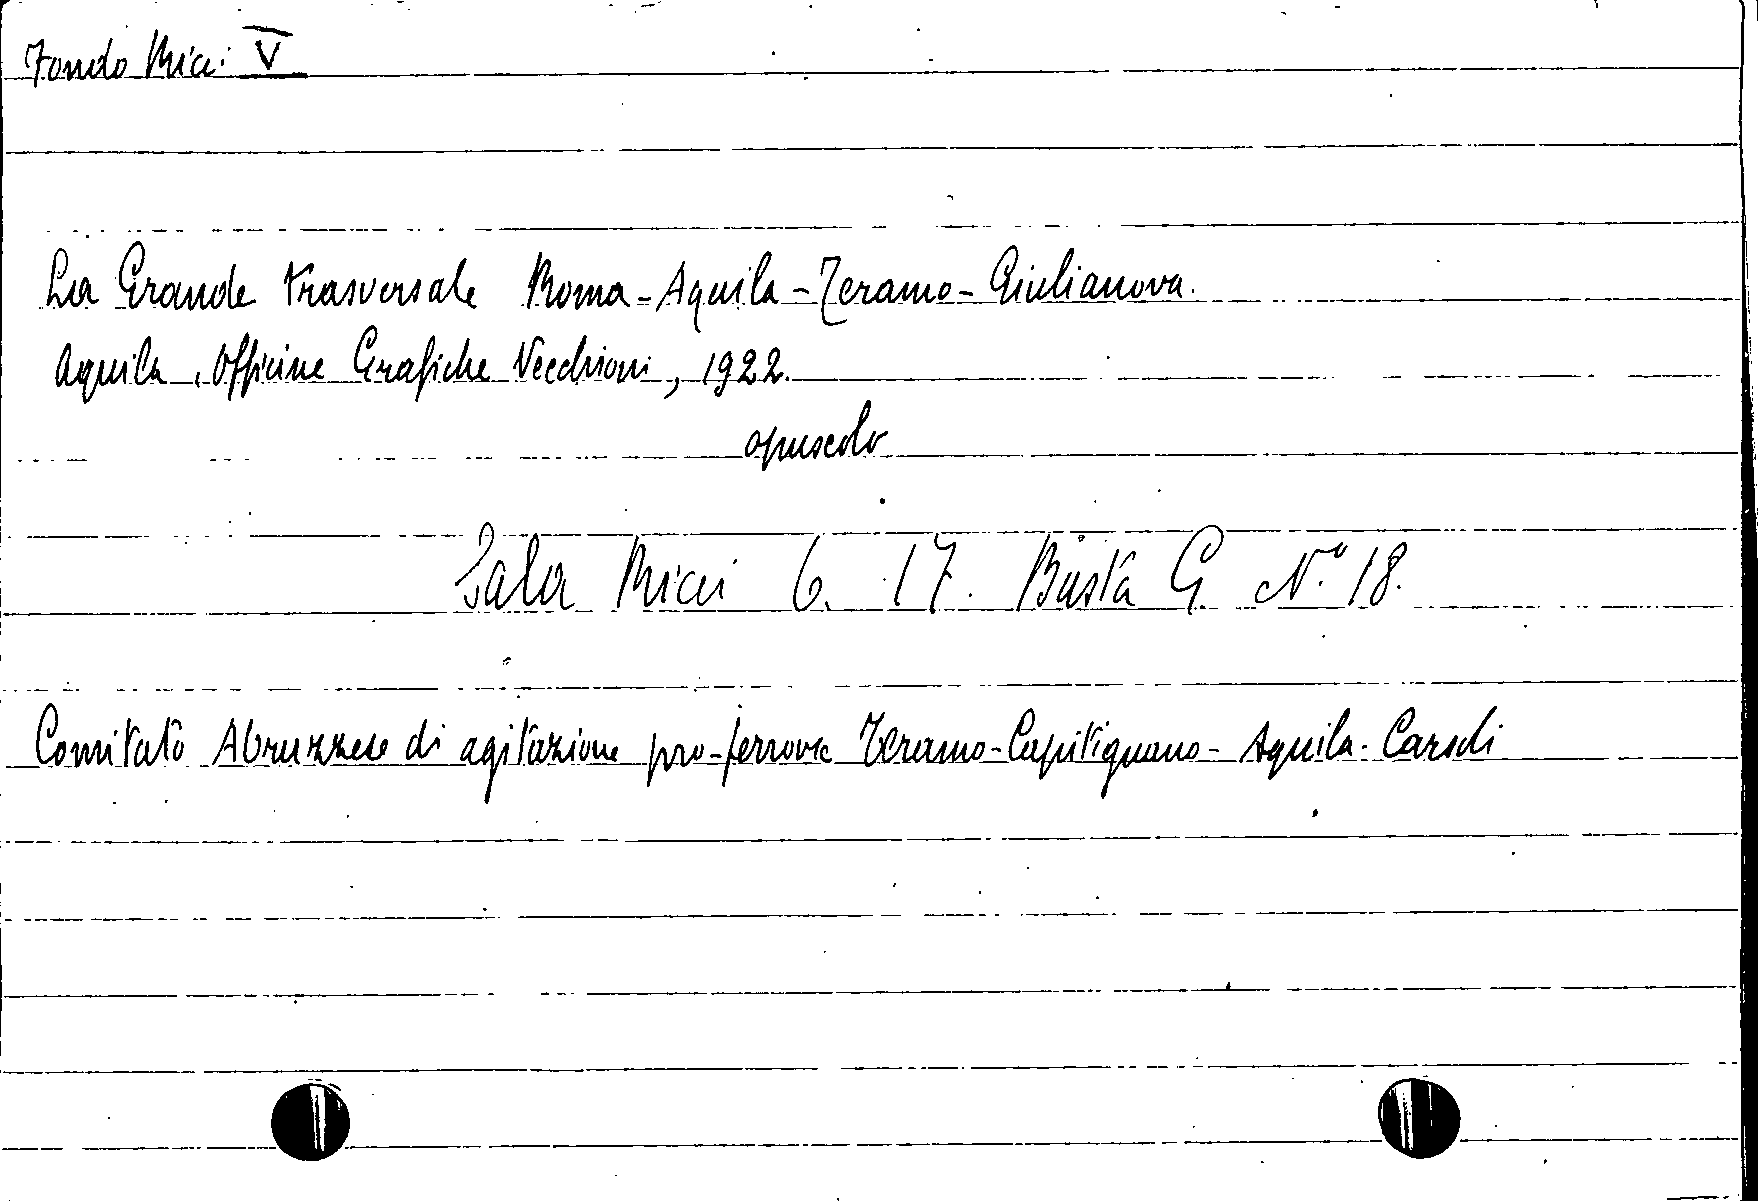 Fondo Ricci V
La Grande trasversale Roma-Aquila-Teramo-Giulianova.
Aquila, Officine Grafiche Vecchioni, 1922.
opuscolo
Sala Ricci 6. 17. Busta G. N.° 18.
Comitato Abruzzese di agitazione pro-ferrovia Teramo-Capitignano-Aquila-Carsoli